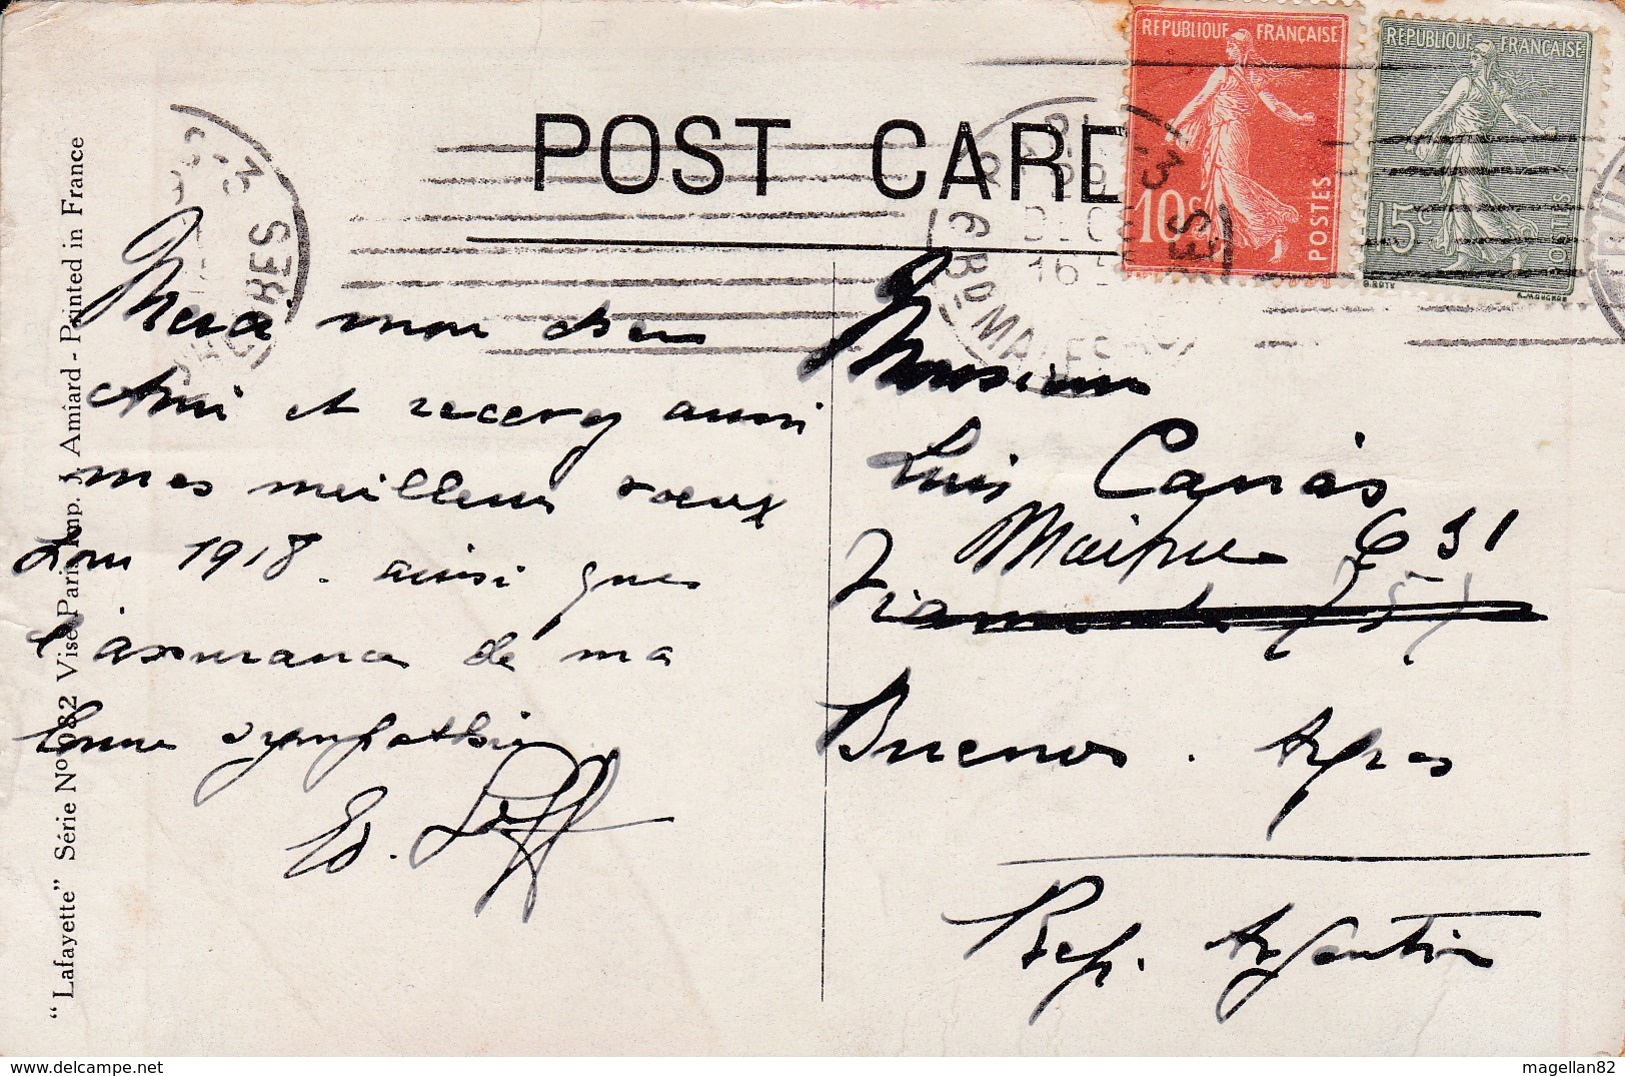 POST CARD
REPUBLIQUE FRANÇAISE
10c
POSTES
REPUBLIQUE FRANÇAISE
15c
POSTES
Merci mon cher
Ami et recevez aussi
mes meilleurs voeux
pour 1918. ainsi que
l'assurance de ma
bonne sympathie
Ed.
Monsieur
Luis
Maipu 631
Viamonte 757
Buenos. Ayres
Rep. Argentine
"Lafayette" Série No 982 Visé Paris. Imp. J. Amiard - Printed in France
magellan82